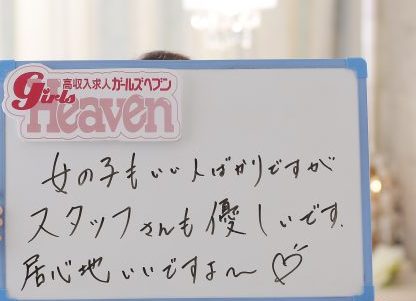 高収入求人ガールズヘブン
Girls
Heaven
女の子もいい人ばかりですが
スタッフさんも優しいです.
居心地いいですよ〜♡